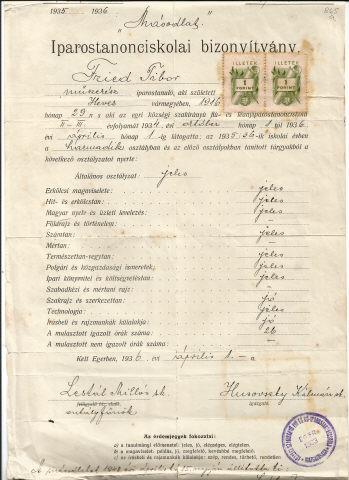 1935 1936
„Másodlat.”
Iparostanonciskolai bizonyítvány.
Fried Tibor
műszerész iparostanuló, aki született
Heves vármegyében, 1916
hónap 29 n s aki az egri községi szakirányú fiú- és leányiparostanonciskola
II-III. évfolyamát 1934. évi október hónap 1-től 1936
évi április hónap 1-ig látogatta: az 1935-36-ik iskolai évben
a harmadik osztályban és az előző osztályokban tanított tárgyakból a
következő osztályzatot nyerte:
ILLETÉK
1
FORINT
ILLETÉK
1
FORINT
Általános osztályzat: jeles
Erkölcsi magaviselete: jeles
Hit- és erkölcstan: jeles
Magyar nyelv és üzleti levelező: jeles
Földrajz és történelem: —
Számtan: jeles
Mértan: —
Természettan-vegytan: jeles
Polgári és közgazdasági ismeretek: jeles
Ipari könyvitel és költségvetéstan: jeles
Szabadkézi és mértani rajz: —
Szakrajz és szerkezettan: jó
Technologia: jeles
Írásbeli és rajzmunkák külalakja: jó
A mulasztott órák száma: 26
A mulasztott nem igazolt órák száma: —
Kelt Egerben, 1936. évi április 1.-n
Husovszky Kálmán sk.
igazgató.
Az érdemjegyek fokozatai:
a) a tanulmányi előmenetel: jeles, jó, elégséges, elégtelen.
b) a magaviselet: példás, jó, megfelelő, kevésbbé megfelelő
c) az írásbeli és rajzmunkák külalakja: szép, rendes, tűrhető, rendetlen